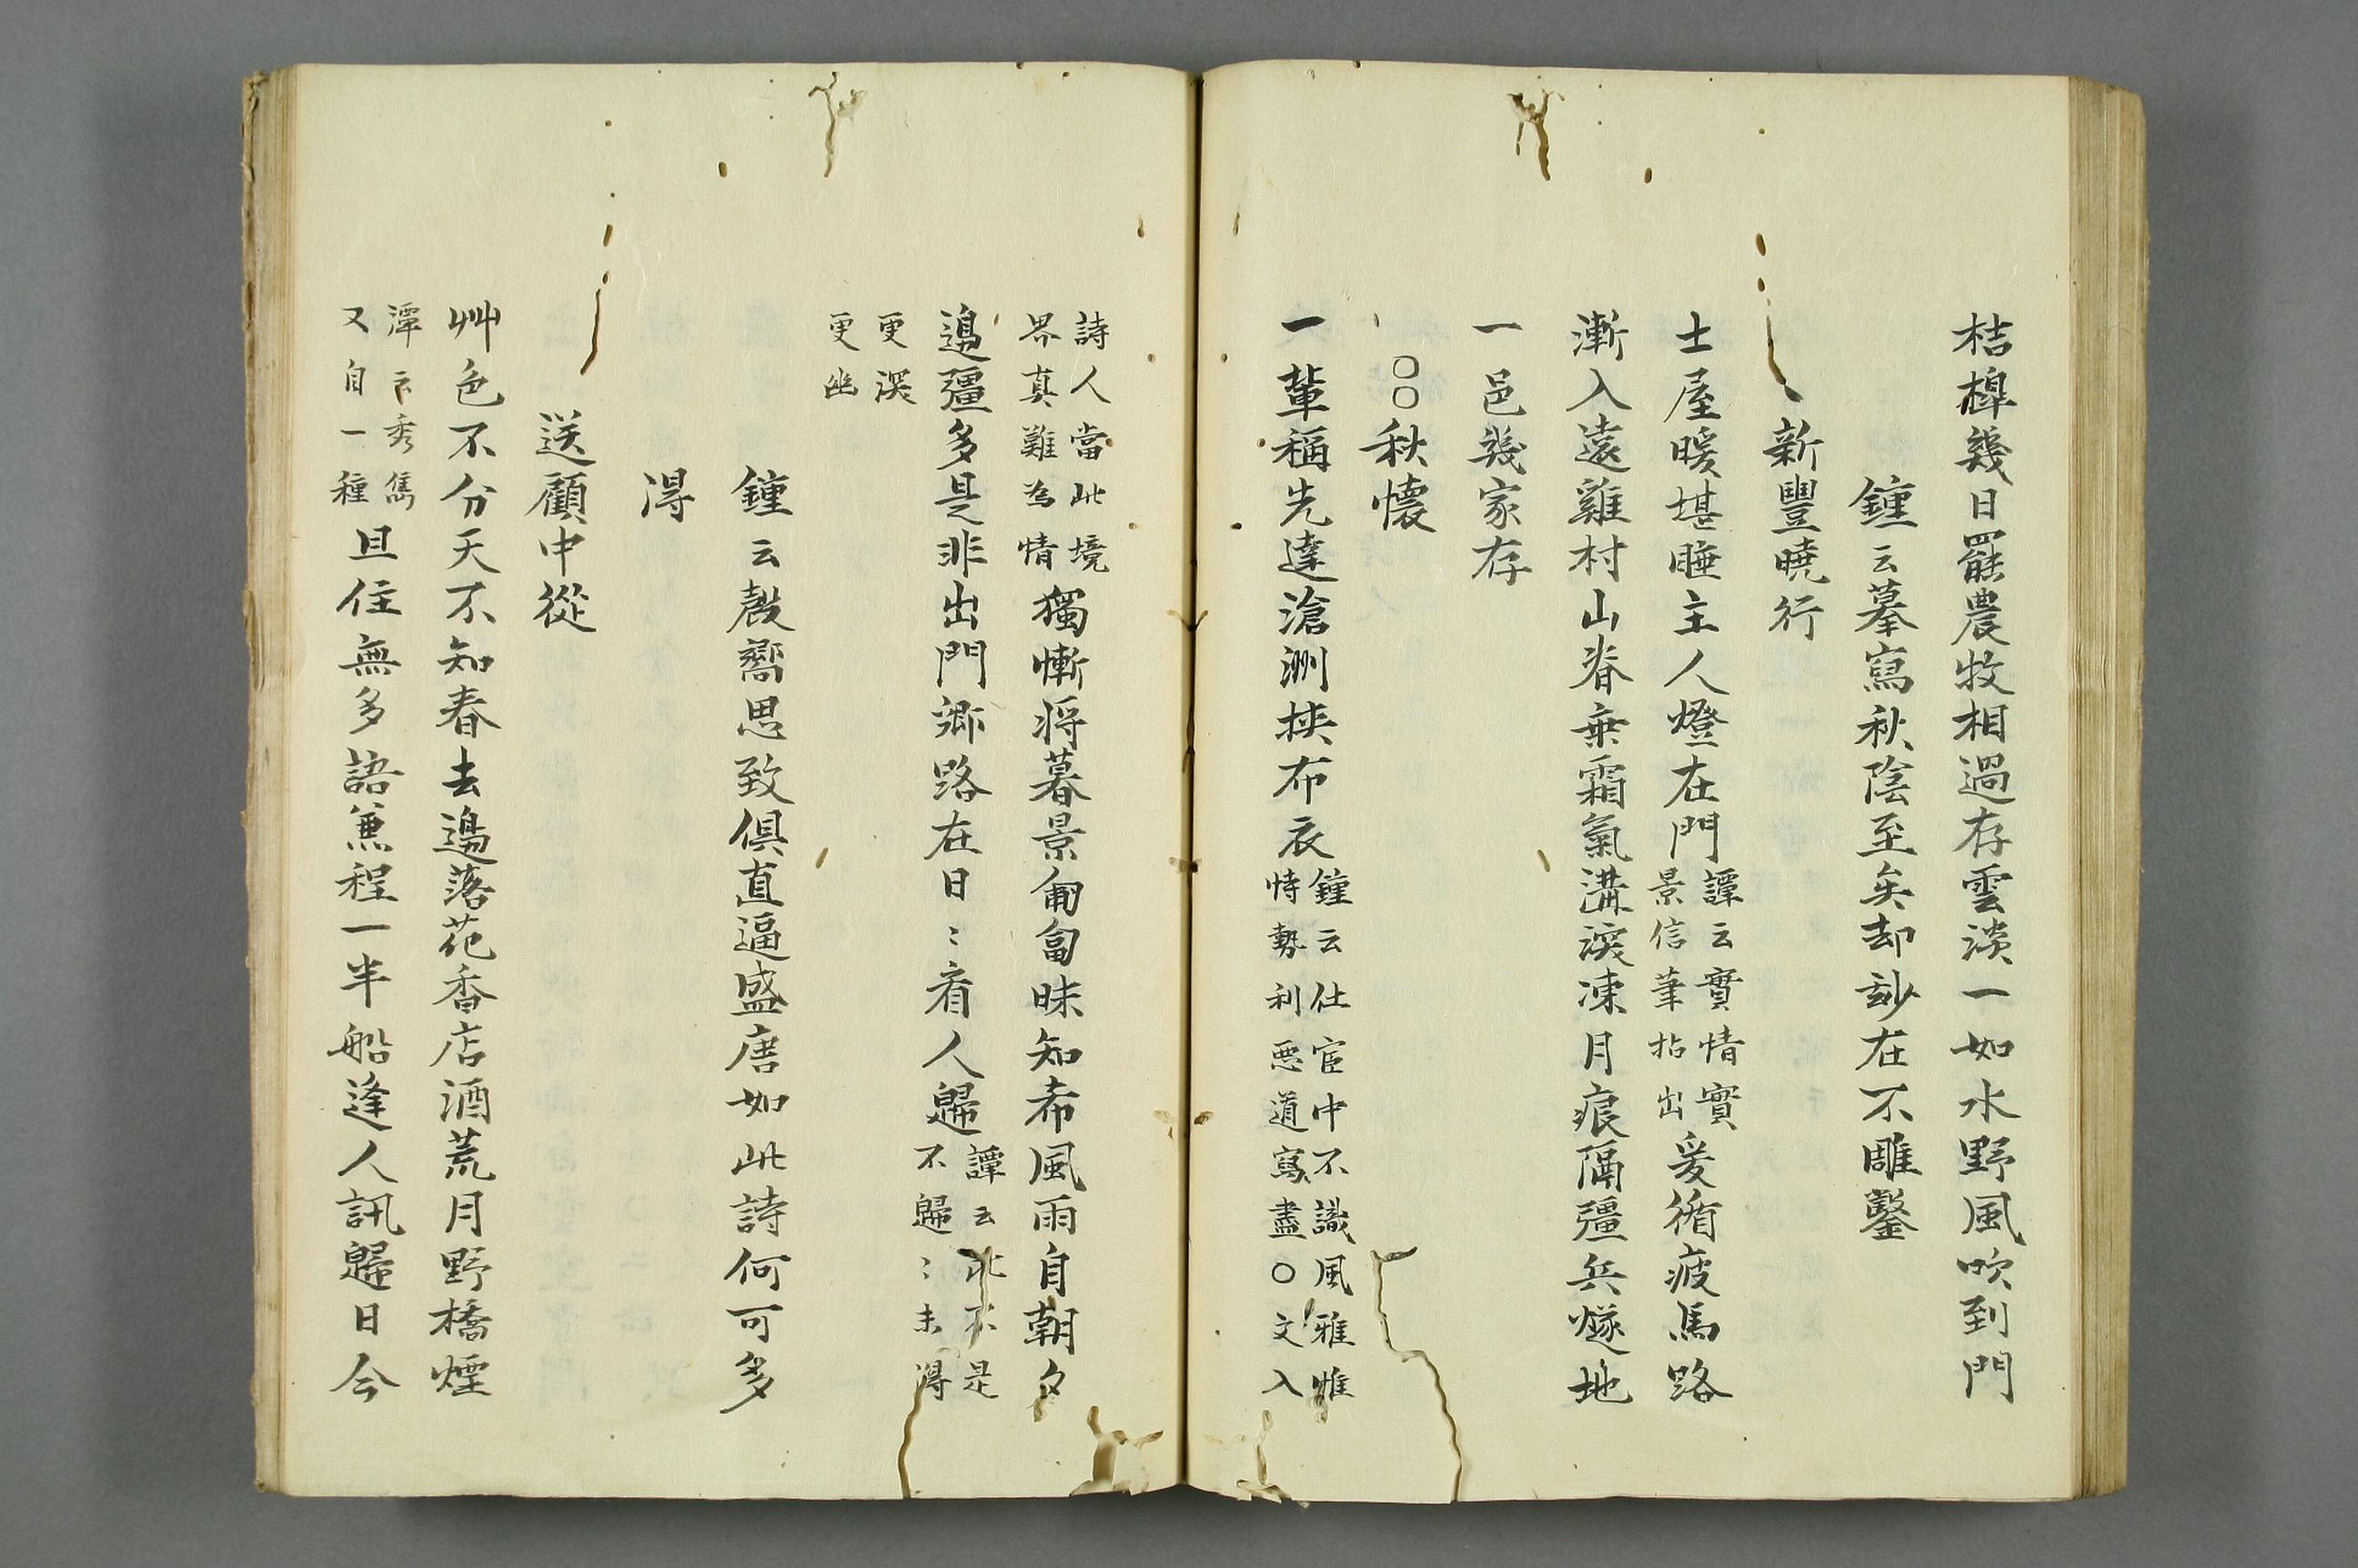 桔槹幾日罷農牧相過存雲淡一如水野風吹到門
鍾云摹寫秋陰至矣却玅在不雕鑿
新豐曉行
士屋暖堪睡主人燈在門譚云實情實景信筆拈出爰循疲馬路
漸入遠雞村山脊乗霜氣溝淚凍月痕隔疆兵燧地
一邑幾家存
○○秋懷
一輩稱先達滄洲挾布衣鍾云仕宦中不識風雅惟恃勢利惡道寫盡○文入
詩人當此境界真難為情獨慚将暮景匍匐昧知希風雨自朝夕
邊疆多是非出門鄉路在日〻看人歸譚云此不是不歸〻未得
更深更幽
鍾云殷嚮思致俱直逼盛唐如此詩何可多
得
送顧中從
艸色不分天不知春去邊落花香店酒荒月野橋煙
潭云秀雋又自一種且住無多語兼程一半船逢人訊歸日今